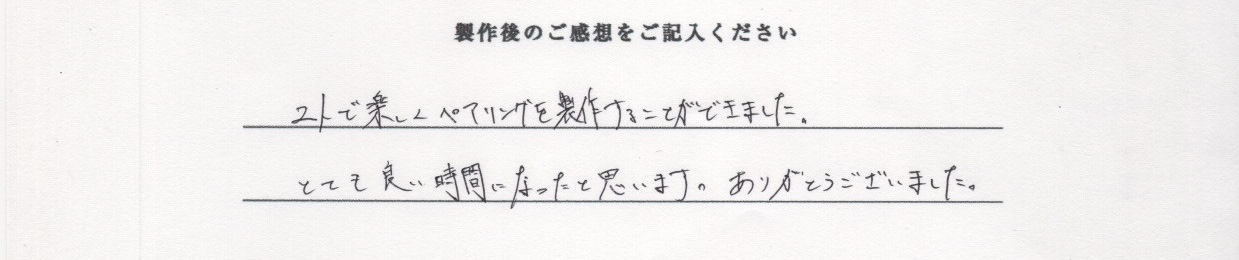 製作後のご感想をご記入ください
2人で楽しくペアリングを製作することができました。
とても良い時間になったと思います。ありがとうございました。